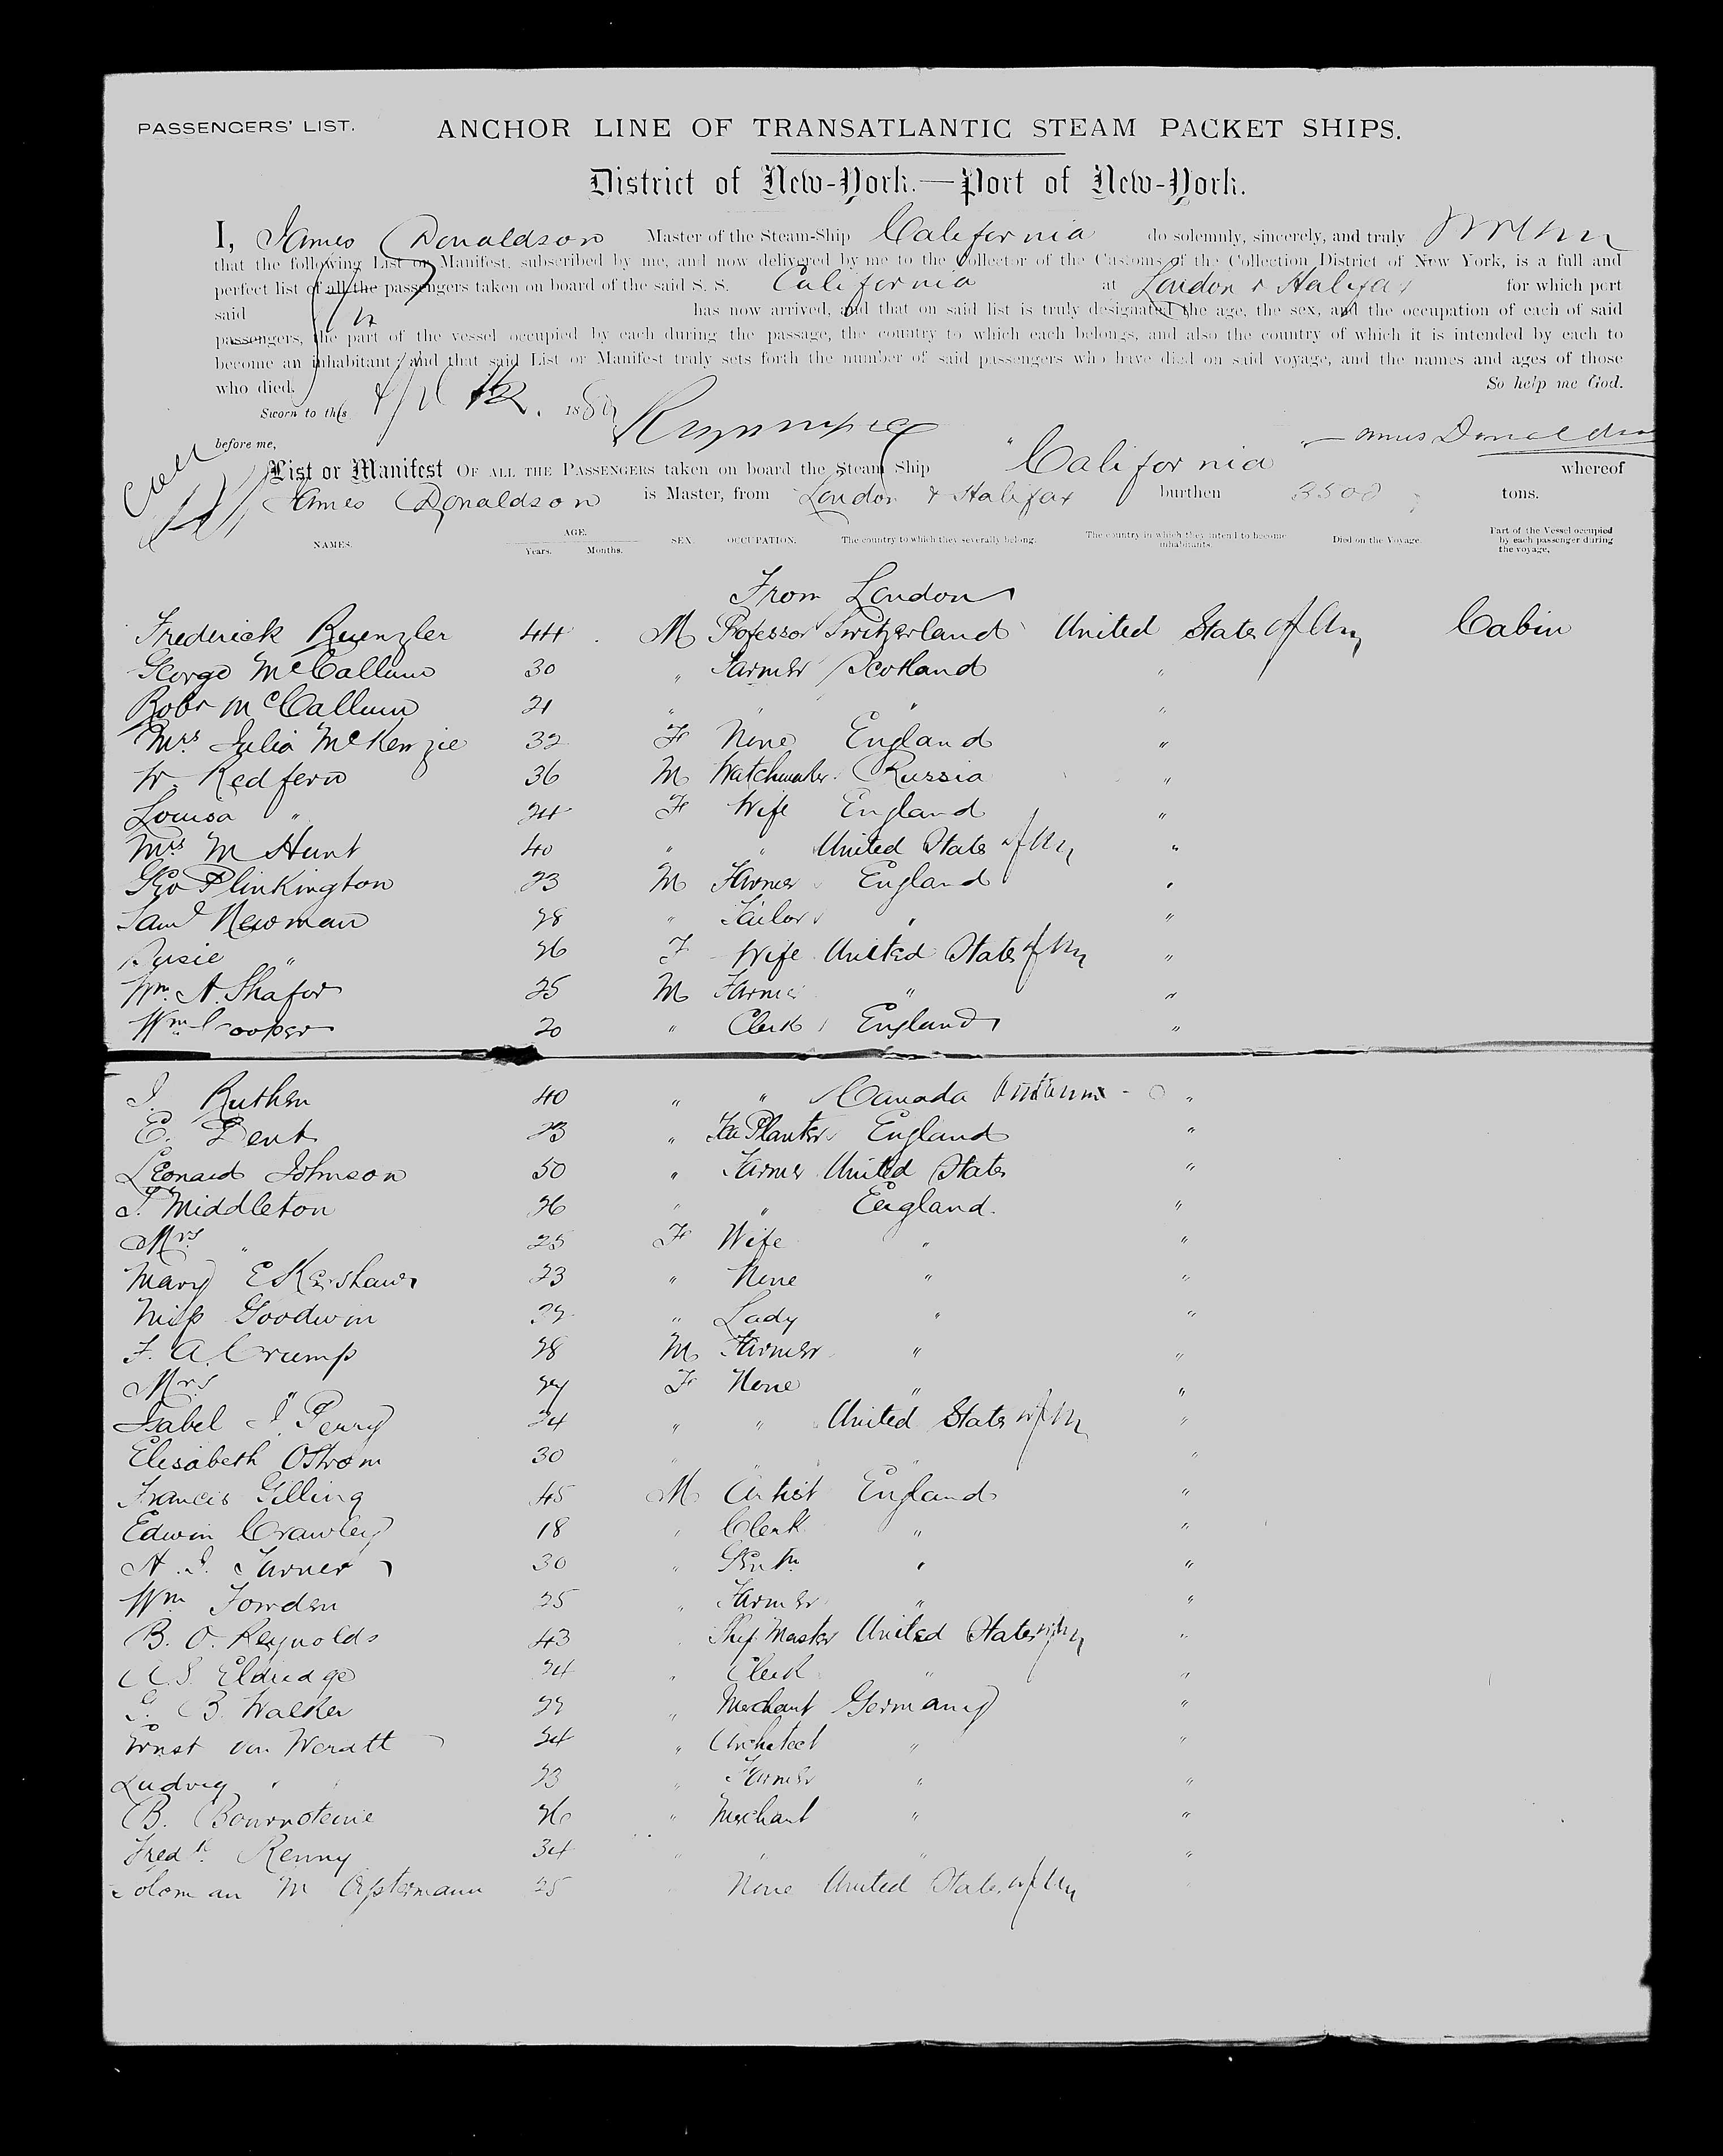 PASSENGERS' LIST.
ANCHOR LINE OF TRANSATLANTIC STEAM PACKET SHIPS.
District of New-York.—Port of New-York.
I, James Donaldson Master of the Steam-Ship California do solemnly, sincerely, and truly
that the following List or Manifest, subscribed by me, and now delivered by me to the Collector of the Customs of the Collection District of New York, is a full and
perfect list of all the passengers taken on board of the said S. S. California at London & Halifax for which port
said has now arrived, and that on said list is truly designated the age, the sex, and the occupation of each of said
passengers, the part of the vessel occupied by each during the passage, the country to which each belongs, and also the country of which it is intended by each to
become an inhabitant; and that said List or Manifest truly sets forth the number of said passengers who have died on said voyage, and the names and ages of those
who died. So help me God.
Sworn to this 12. 188
before me, James Donaldson
List or Manifest OF ALL THE PASSENGERS taken on board the Steam Ship California whereof
James Donaldson is Master, from London & Halifax burthen 3500 tons.
NAMES. AGE. Years. Months. SEX. OCCUPATION. The country to which they severally belong. The country in which they intend to become inhabitants. Died on the Voyage. Part of the Vessel occupied by each passenger during the voyage.
From London
Frederick Ruenzler 44 M Professor Switzerland United States of Am Cabin
George McCallum 30 " Farmer Scotland "
Robr McCallum 21 " " " "
Mrs Julia McKenzie 32 F None England "
W. Redfern 36 M Watchmaker Russia "
Louisa " 24 F Wife England "
Mrs M Hunt 40 " " United States of Am "
Geo Plinkington 23 M Farmer England "
Saml Newman 28 " Tailor " "
Susie " 26 F Wife United States of Am "
Wm. A. Shafor 25 M Farmer " "
Wm Cooper 20 " Clerk England "
J. Ruthen 40 " " Canada "
E. Dent 23 " Tea Planter England "
Leonard Johnson 50 " Farmer United States "
T. Middleton 26 " " England "
Mrs " 25 F Wife " "
Mary E Kershaw 23 " None " "
Miss Goodwin 22 " Lady " "
F. A. Crump 28 M Farmer " "
Mrs " 27 F None " "
Isabel J. Perry 24 " " United States of Am "
Elisabeth Ostrom 30 " " " "
Francis Gilling 45 M Artist England "
Edwin Crawley 18 " Clerk " "
A. J. Turner 30 " Gentn " "
Wm Fowden 25 " Farmer " "
B. O. Reynolds 43 " Ship Master United States of Am "
A. S. Eldredge 24 " Clerk " "
G. B. Walker 22 " Merchant Germany "
Ernst von Weratt 24 " Architect " "
Ludwig " 23 " Farmer " "
B. Bournsteine 26 " Merchant " "
Fredk. Renny 34 " " " "
Soloman M 25 None United States of Am